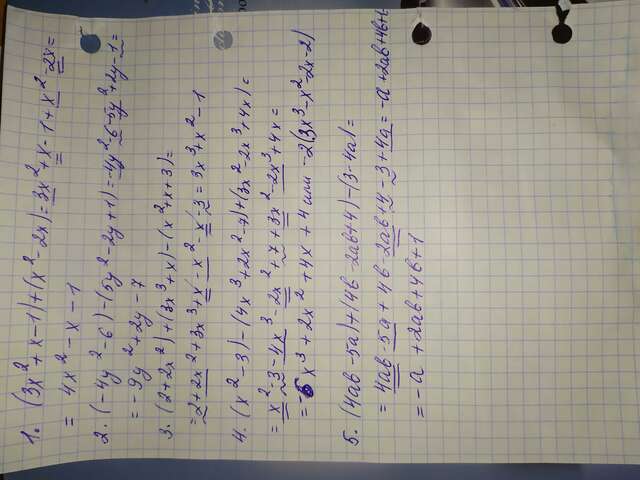 1. (3x²+x-1)+(x²-2x)=3x²+x-1+x²-2x=
= 4x²-x-1
2. (-4y²-6)-(5y²-2y+1)=-4y²-6-5y²+2y-1=
= -9y²+2y-7
3. (2+2x²)+(3x³+x)-(x²+x+3)=
=2+2x²+3x³+x-x²-x-3=3x³+x²-1
4. (x²-3)-(4x³+2x²-7)+(3x²-2x³+4x)=
=x²-3-4x³-2x²+7+3x²-2x³+4x=
=-6x³+2x²+4x+4 или -2(3x³-x²-2x-2)
5. (4ab-5a)+(4b-2ab+4)-(3-4a)=
=4ab-5a+4b-2ab+4-3+4a=-a+2ab+4b+
=-a+2ab+4b+1